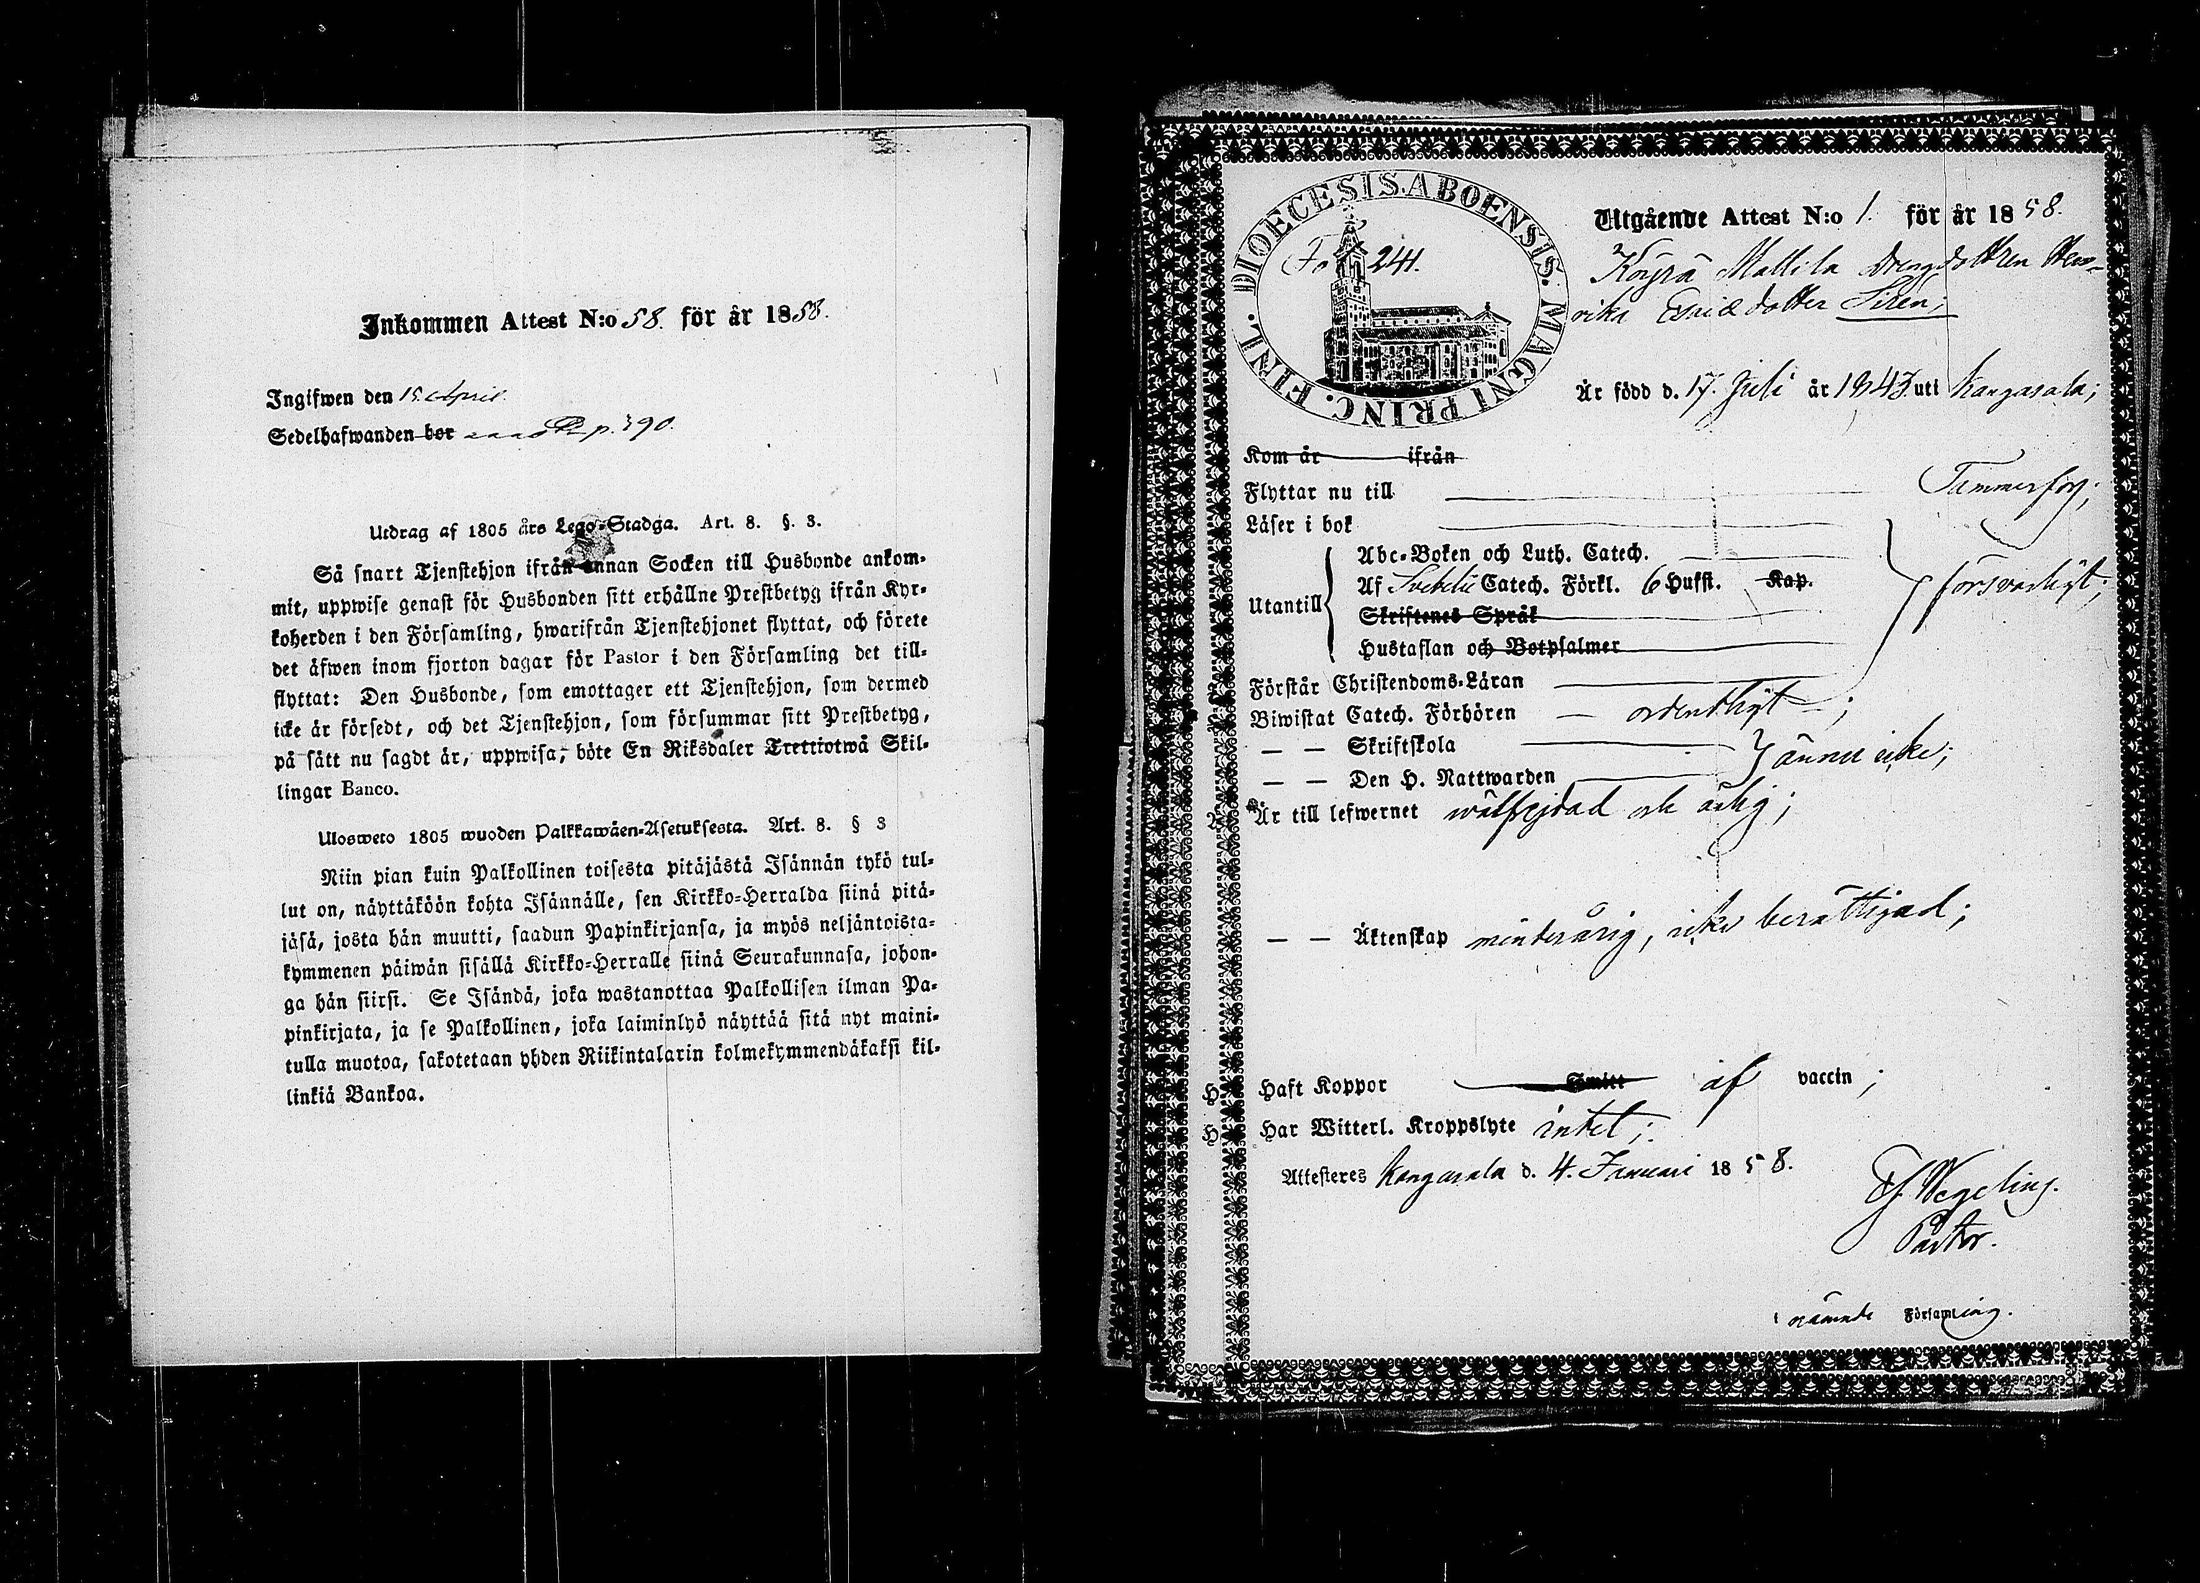 Inkommen Attest N:o 58. för år 1858.
Ingifwen den 15 April.
Sedelhafwanden bor p. 390.
Utdrag af 1805 års Lego-Stadga. Art. 8. §. 3.
Så snart Tjenstehjon ifrån annan Socken till Husbonde ankom-
mit, uppwise genast för Husbonden sitt erhållne Prestbetyg ifrån Kyr-
koherden i den Församling, hwarifrån Tjenstehjonet flyttat, och förete
det äfwen inom fjorton dagar för Pastor i den Församling det till-
flyttat: Den Husbonde, som emottager ett Tjenstehjon, som dermed
icke är försedt, och det Tjenstehjon, som försummar sitt Prestbetyg,
på sätt nu sagdt är, uppwisa, böte En Riksdaler Trettiotwå Skil-
lingar Banco.
Ulosweto 1805 wuoden Palkkawäen-Asetuksesta. Art. 8. § 3
Niin pian kuin Palkollinen toisesta pitäjästä Isännän tykö tul-
lut on, näyttäköön kohta Isännälle, sen Kirkko-Herralda siinä pitä-
jäsä, josta hän muutti, saadun Papinkirjansa, ja myös neljäntoista-
kymmenen päiwän sisällä Kirkko-Herralle siinä Seurakunnasa, johon-
ga hän siirsi. Se Isändä, joka wastanottaa Palkollisen ilman Pa-
pinkirjata, ja se Palkollinen, joka laiminlyö näyttää sitä nyt maini-
tulla muotoa, sakotetaan yhden Riikintalarin kolmekymmendäkaksi kil-
linkiä Bankoa.
DIOECESIS. ABOENSIS. MAGNI PRINC. FINL.
Fo 241.
Utgående Attest N:o 1. för år 1858.
Köyrä Mattila Drengdottren Hen-
rika Esaiædotter Siren;
Är född d. 17. Juli år 1843 uti Kangasala;
Kom år ifrån
Flyttar nu till Tammerfors;
Läser i bok
Abc-Boken och Luth. Catech.
Utantill Af Svebelii Catech. Förkl. 6 Hufst. Kap. försvarligt;
Skriftenes Språk
Hustaflan och Botpsalmer
Förstår Christendoms-Läran
Biwistat Catech. Förhören ordentligt;
— — Skriftskola
ännu icke;
— — Den H. Nattwarden
Är till lefwernet wälfrejdad och ärlig;
— — Äktenskap minderårig, icke berättigad;
Haft Koppor Smitt af vaccin;
Har Witterl. Kroppslyte intet;
Attesteres Kangasala d. 4. Januari 1858.
Wegelius.
Pastor.
i nämnde Församling.